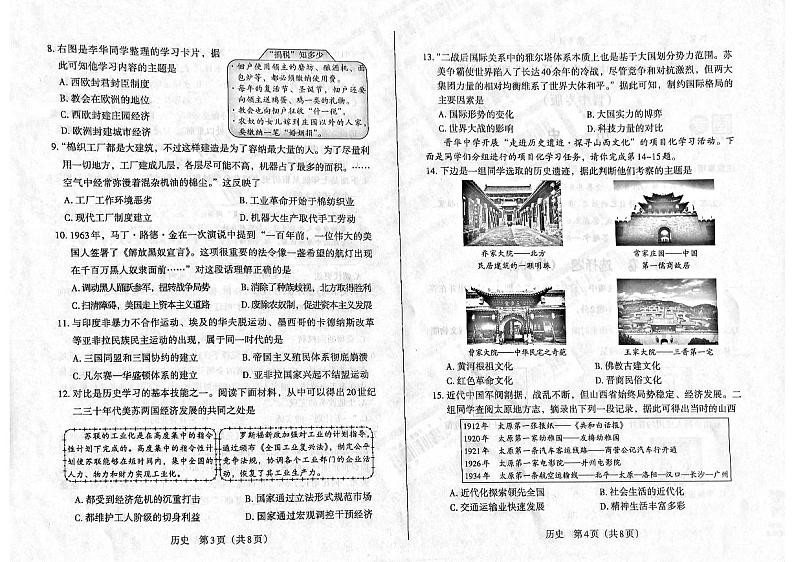 8. 右图是李华同学整理的学习卡片，据
此可知他学习内容的主题是
A. 西欧封君封臣制度
B. 教会在欧洲的地位
C. 西欧封建庄园经济
D. 欧洲封建城市经济
“捐税”知多少
·佃户使用领主的磨坊、酿酒机、面
包炉等，都必须缴纳使用费。
·每年的复活节、圣诞节，佃户还要
向领主送鸡蛋、鸡一类的礼物。
·教会也向佃户征收“什一税”。
·农奴的女儿嫁到庄园以外的人家，
要缴纳一笔“婚姻捐”。
9. “棉织工厂都是大建筑，不过这样建造是为了容纳最大量的人。为了尽量利
用一切地方，工厂建成几层，各层尽可能不高，机器占了最多的面积。……
空气中经常弥漫着混杂机油的棉尘。”这反映了
A. 工厂工作环境恶劣
B. 工业革命开始于棉纺织业
C. 现代工厂制度建立
D. 机器大生产取代手工劳动
10. 1963年，马丁·路德·金在一次演说中提到“一百年前，一位伟大的美
国人签署了《解放黑奴宣言》。这项很重要的法令像一盏希望的航灯出现
在千百万黑人奴隶面前……”对这段话理解正确的是
A. 调动黑人踊跃参军，扭转战争局势
B. 消除了种族歧视，北方取得胜利
C. 扫清障碍，美国走上资本主义道路
D. 废除农奴制，促进资本主义发展
11. 与印度非暴力不合作运动、埃及的华夫脱运动、墨西哥的卡德纳斯改革
等亚非拉民族民主运动的出现，属于同一时代的是
A. 三国同盟和三国协约的建立
B. 帝国主义的殖民体系彻底崩溃
C. 凡尔赛—华盛顿体系的建立
D. 亚非拉国家兴起不结盟运动
12. 对比是历史学习的基本技能之一。阅读下面材料，从中可以得出20世纪
二三十年代美苏两国经济发展的共同之处是
苏联的工业化是在高度集中的指令
性计划下完成的。高度集中的指令性计
划使苏联能够在短时间内，集中全国的
人力、物力和财力实现工业化。
罗斯福新政加强对工业的计划指导，
通过颁布《全国工业复兴法》，制定公平
竞争法规，协调各个工业部门的企业活
动，恢复了其工业生产力。
A. 都受到经济危机的沉重打击
B. 国家通过立法形式规范市场
C. 都维护工人阶级的切身利益
D. 国家通过宏观调控干预经济
历史 第3页（共8页）
13. “二战后国际关系中的雅尔塔体系本质上也是基于大国划分势力范围。苏
美争霸使世界陷入了长达40余年的冷战，尽管竞争和对抗激烈，但两大
集团力量的相对均衡维系了世界大体和平。”据此可知，制约国际格局的
主要因素是
A. 国际形势的变化
B. 大国实力的博弈
C. 世界大战的影响
D. 科技力量的对比
晋华中学开展“走进历史遗迹·探寻山西文化”的项目化学习活动。下
面是同学们分组进行的项目化学习任务，请你完成第14-15题。
14. 下边是一组同学选取的历史遗迹，据此判断他们考察的主题是
乔家大院——北方
民居建筑的一颗明珠
常家庄园——中国
第一儒商故居
曾家大院——中华民宅之奇葩
王家大院——三晋第一宅
A. 黄河根祖文化
B. 佛教古建文化
C. 红色革命文化
D. 晋商民俗文化
15. 近代中国军阀割据，战乱不断，但山西省始终局势稳定、经济发展。二
组同学查阅太原地方志，摘录出下列一段记录，据此可得出当时的山西
1912年 太原第一张报纸——《共和白话报》
1920年 太原第一家幼稚园——友梅幼稚园
1921年 太原第一条汽车客运线路——商营公记汽车行开通
1926年 太原第一家电影院——并州电影院
1934年 太原第一条航空运输线——北平—太原—洛阳—汉口—长沙—广州
A. 近代化探索领先全国
B. 社会生活的近代化
C. 交通运输业快速发展
D. 精神生活丰富多彩
历史 第4页（共8页）